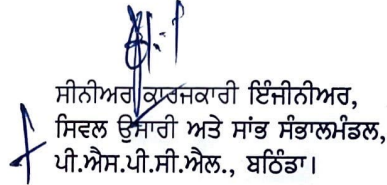 ਸੀਨੀਅਰ ਕਾਰਜਕਾਰੀ ਇੰਜੀਨੀਅਰ,
ਸਿਵਲ ਉਸਾਰੀ ਅਤੇ ਸਾਂਭ ਸੰਭਾਲਮੰਡਲ,
ਪੀ.ਐਸ.ਪੀ.ਸੀ.ਐਲ., ਬਠਿੰਡਾ।